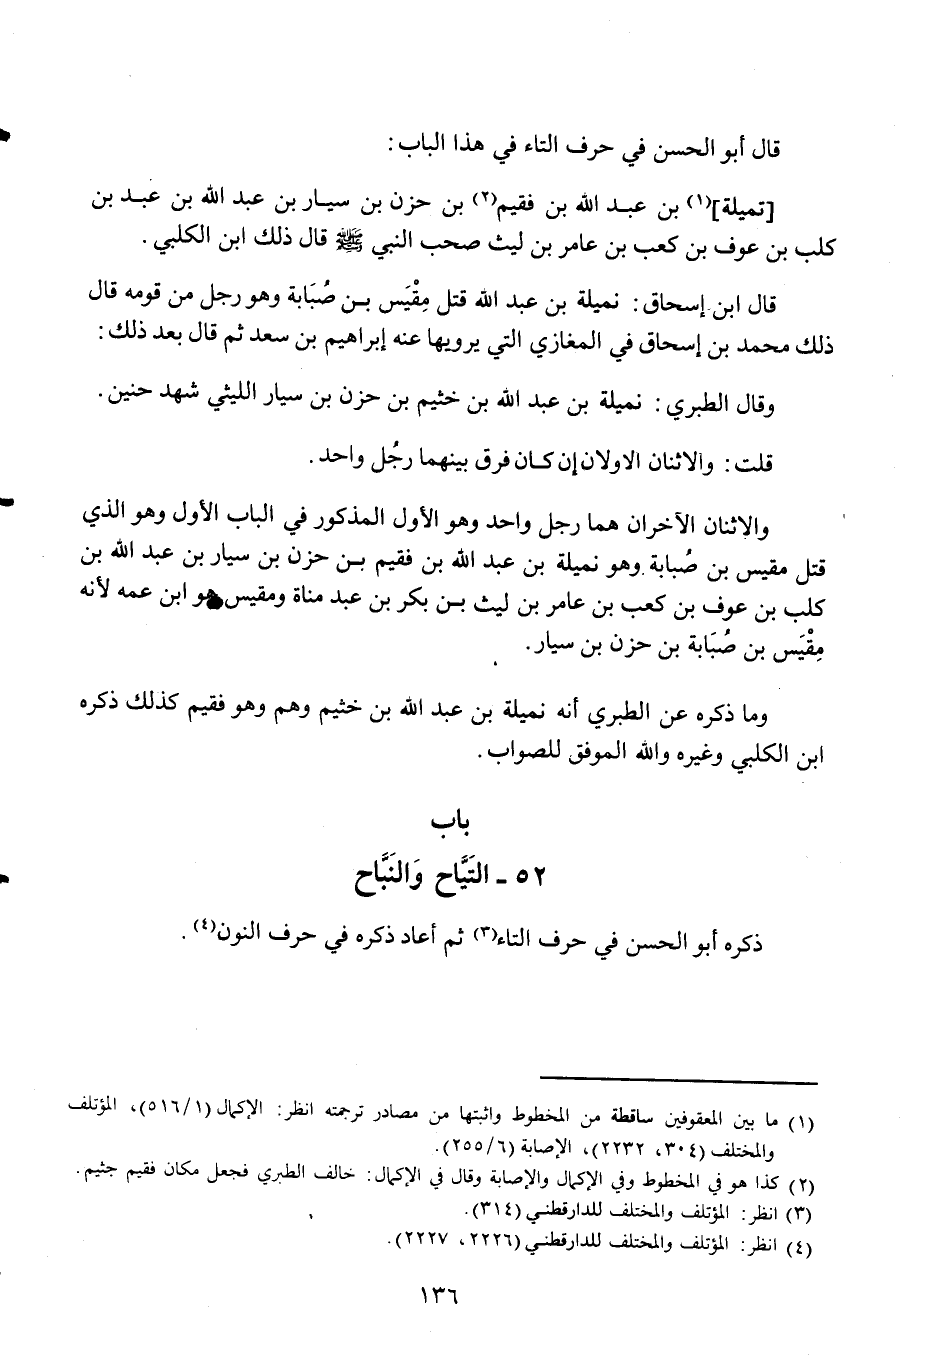 قال أبو الحسن في حرف التاء في هذا الباب:
[تميلة](١) بن عبد الله بن فقيم(٢) بن حزن بن سيار بن عبد الله بن عبد بن
كلب بن عوف بن كعب بن عامر بن ليث صحب النبي ﷺ قال ذلك ابن الكلبي.
قال ابن إسحاق: نميلة بن عبد الله قتل مِقْيَس بن صُبَابة وهو رجل من قومه قال
ذلك محمد بن إسحاق في المغازي التي يرويها عنه إبراهيم بن سعد ثم قال بعد ذلك:
وقال الطبري: نميلة بن عبد الله بن خثيم بن حزن بن سيار الليثي شهد حنين.
قلت: والاثنان الاولان إن كان فرق بينهما رجُل واحد.
والإثنان الآخران هما رجل واحد وهو الأول المذكور في الباب الأول وهو الذي
قتل مقيس بن صُبابة وهو نميلة بن عبد الله بن فقيم بن حزن بن سيار بن عبد الله بن
كلب بن عوف بن كعب بن عامر بن ليث بن بكر بن عبد مناة ومقيس هو ابن عمه لأنه
مِقْيَس بن صُبَابة بن حزن بن سيار.
وما ذكره عن الطبري أنه نميلة بن عبد الله بن خثيم وهم وهو فقيم كذلك ذكره
ابن الكلبي وغيره والله الموفق للصواب.
باب
٥٢ - التَيَّاح وَالنَبَّاح
ذكره أبو الحسن في حرف التاء(٣) ثم أعاد ذكره في حرف النون(٤).
(١) ما بين المعقوفين ساقطة من المخطوط واثبتها من مصادر ترجمته انظر: الإكمال (٥١٦/١)، المؤتلف
والمختلف (٣٠٤، ٢٢٣٢)، الإصابة (٢٥٥/٦).
(٢) كذا هو في المخطوط وفي الإكمال والإصابة وقال في الإكمال: خالف الطبري فجعل مكان فقيم جثيم.
(٣) انظر: المؤتلف والمختلف للدارقطني (٣١٤).
(٤) انظر: المؤتلف والمختلف للدارقطني (٢٢٢٦، ٢٢٢٧).
١٣٦